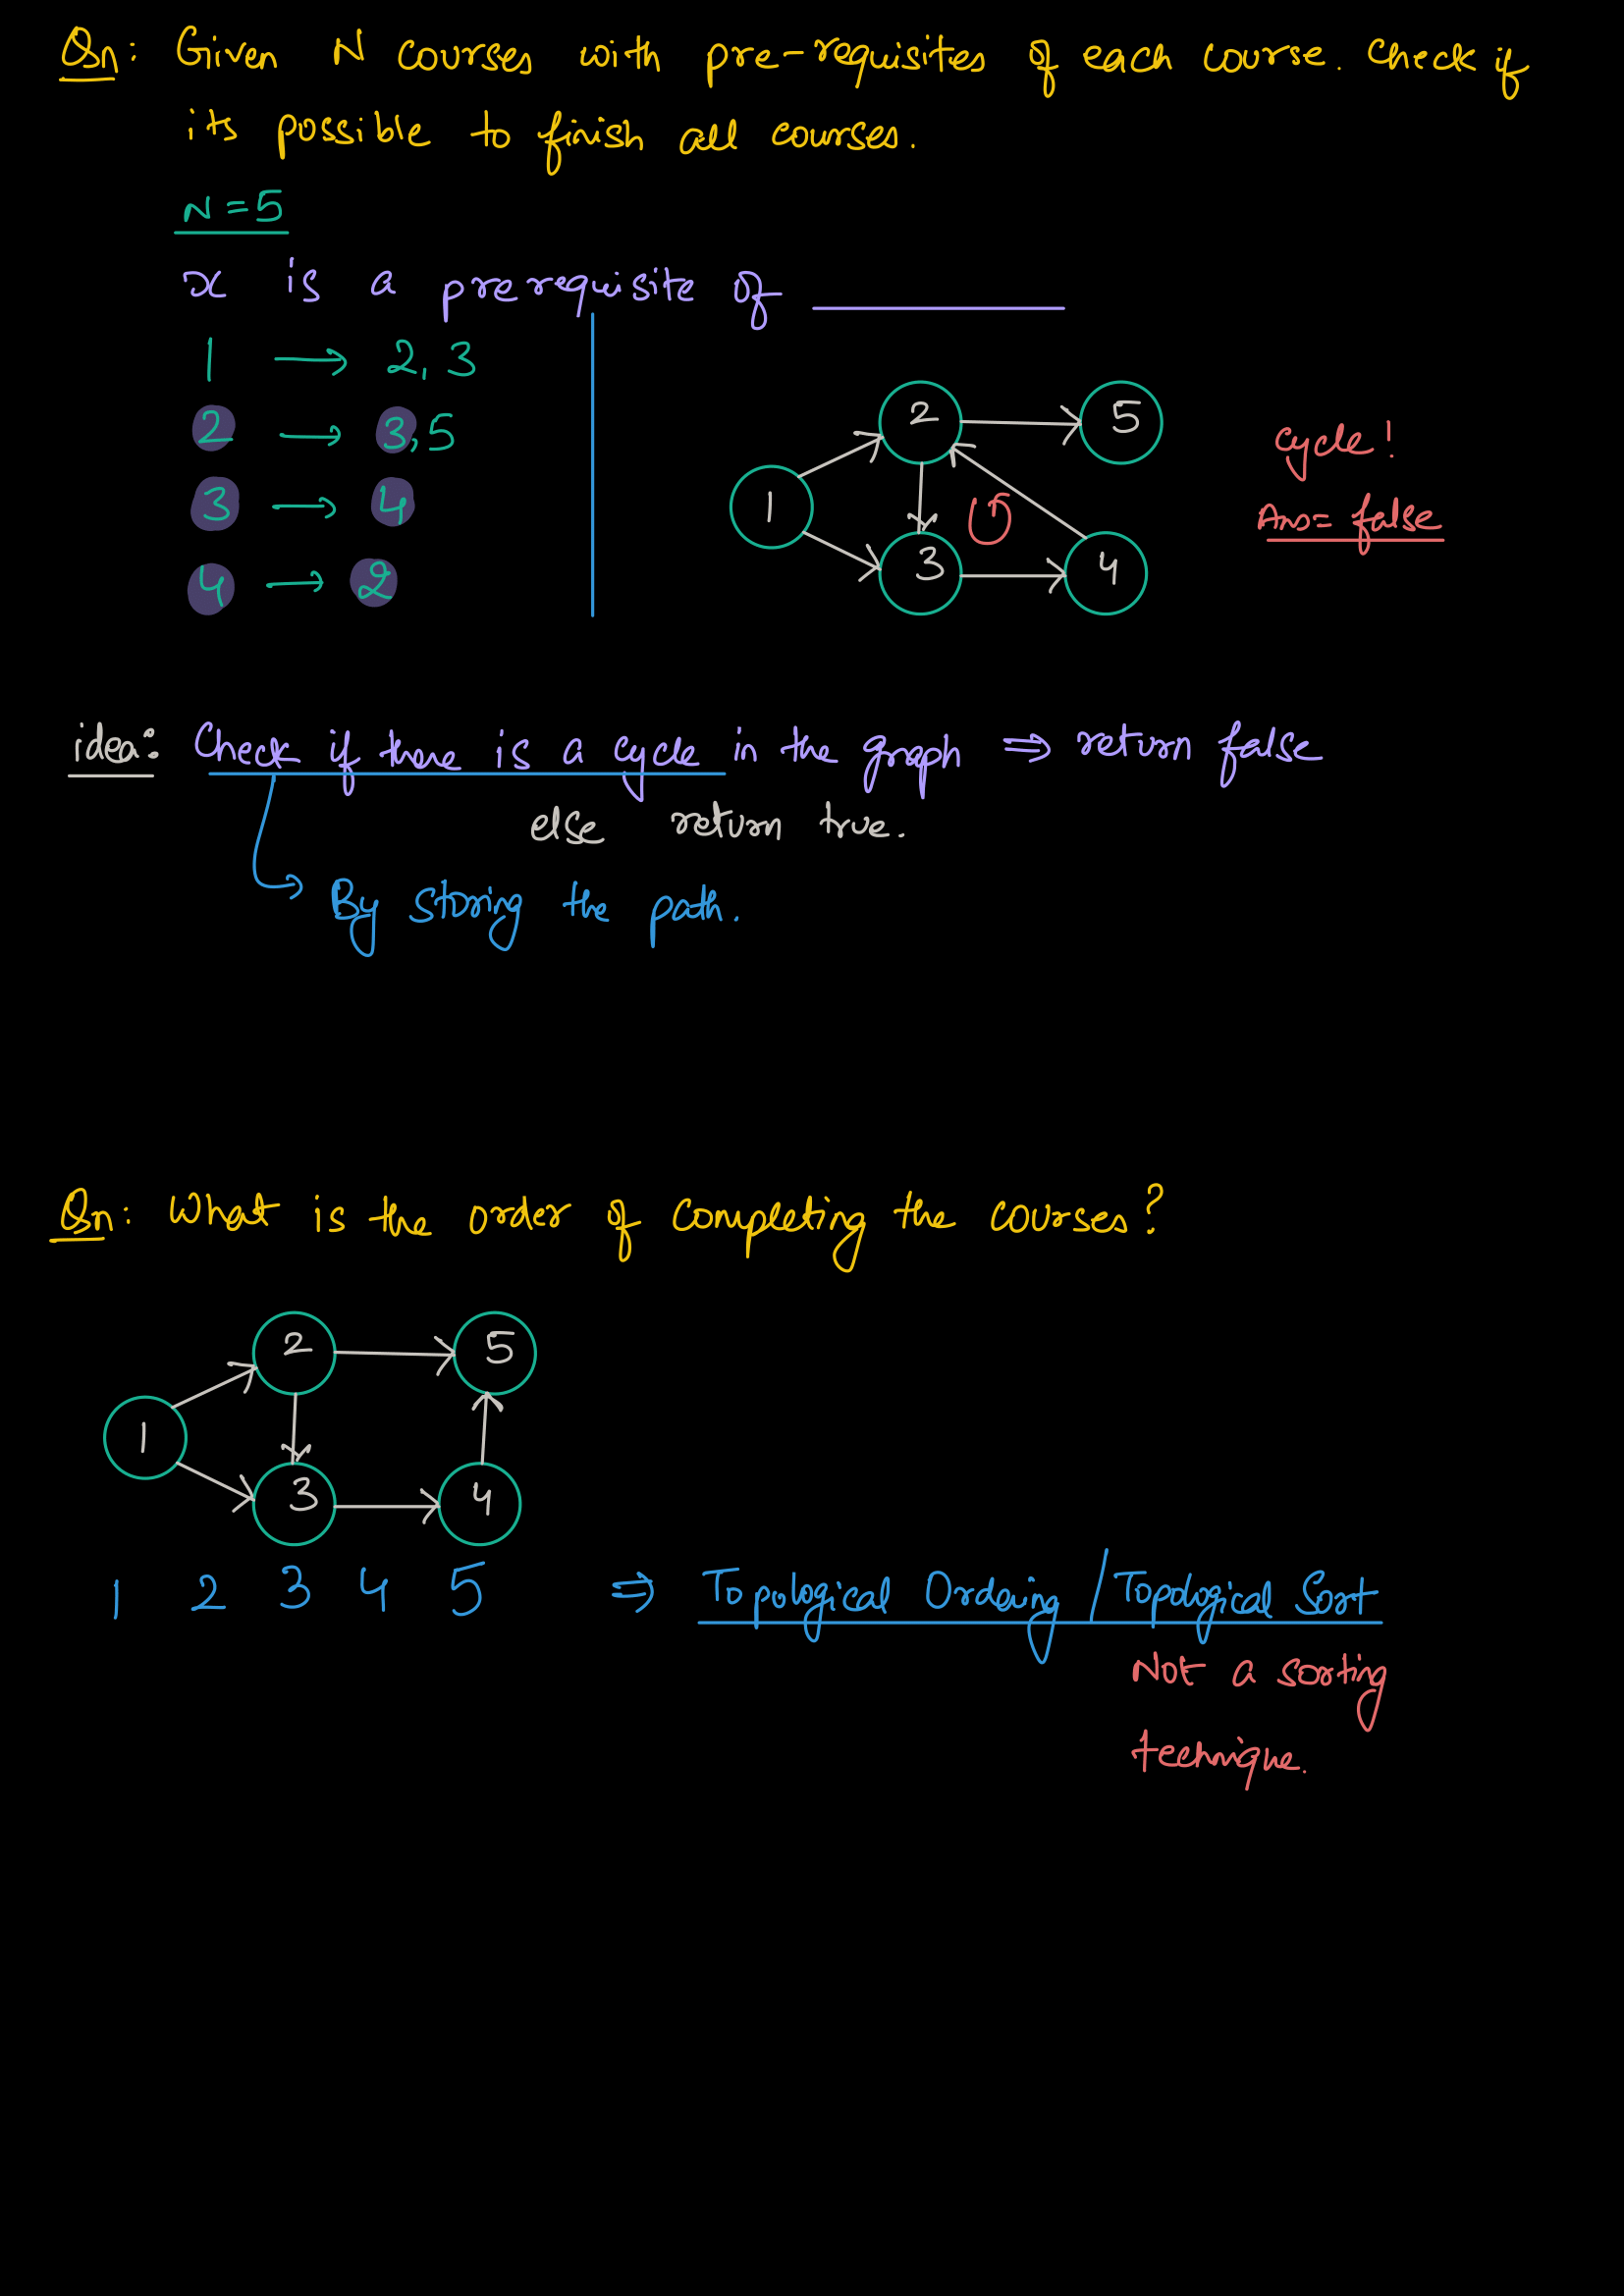 Qn: Given N courses with pre-requisites of each course. Check if
its possible to finish all courses.
N=5
x is a prerequisite of ________
1 → 2, 3
2 → 3, 5
3 → 4
4 → 2
2 5
1
3 4
cycle!
Ans= false
idea: Check if there is a cycle in the graph ⇒ return false
else return true.
By storing the path.
Qn: What is the order of completing the courses?
2 5
1
3 4
1 2 3 4 5 ⇒ Topological Ordering / Topological Sort
Not a sorting
technique.